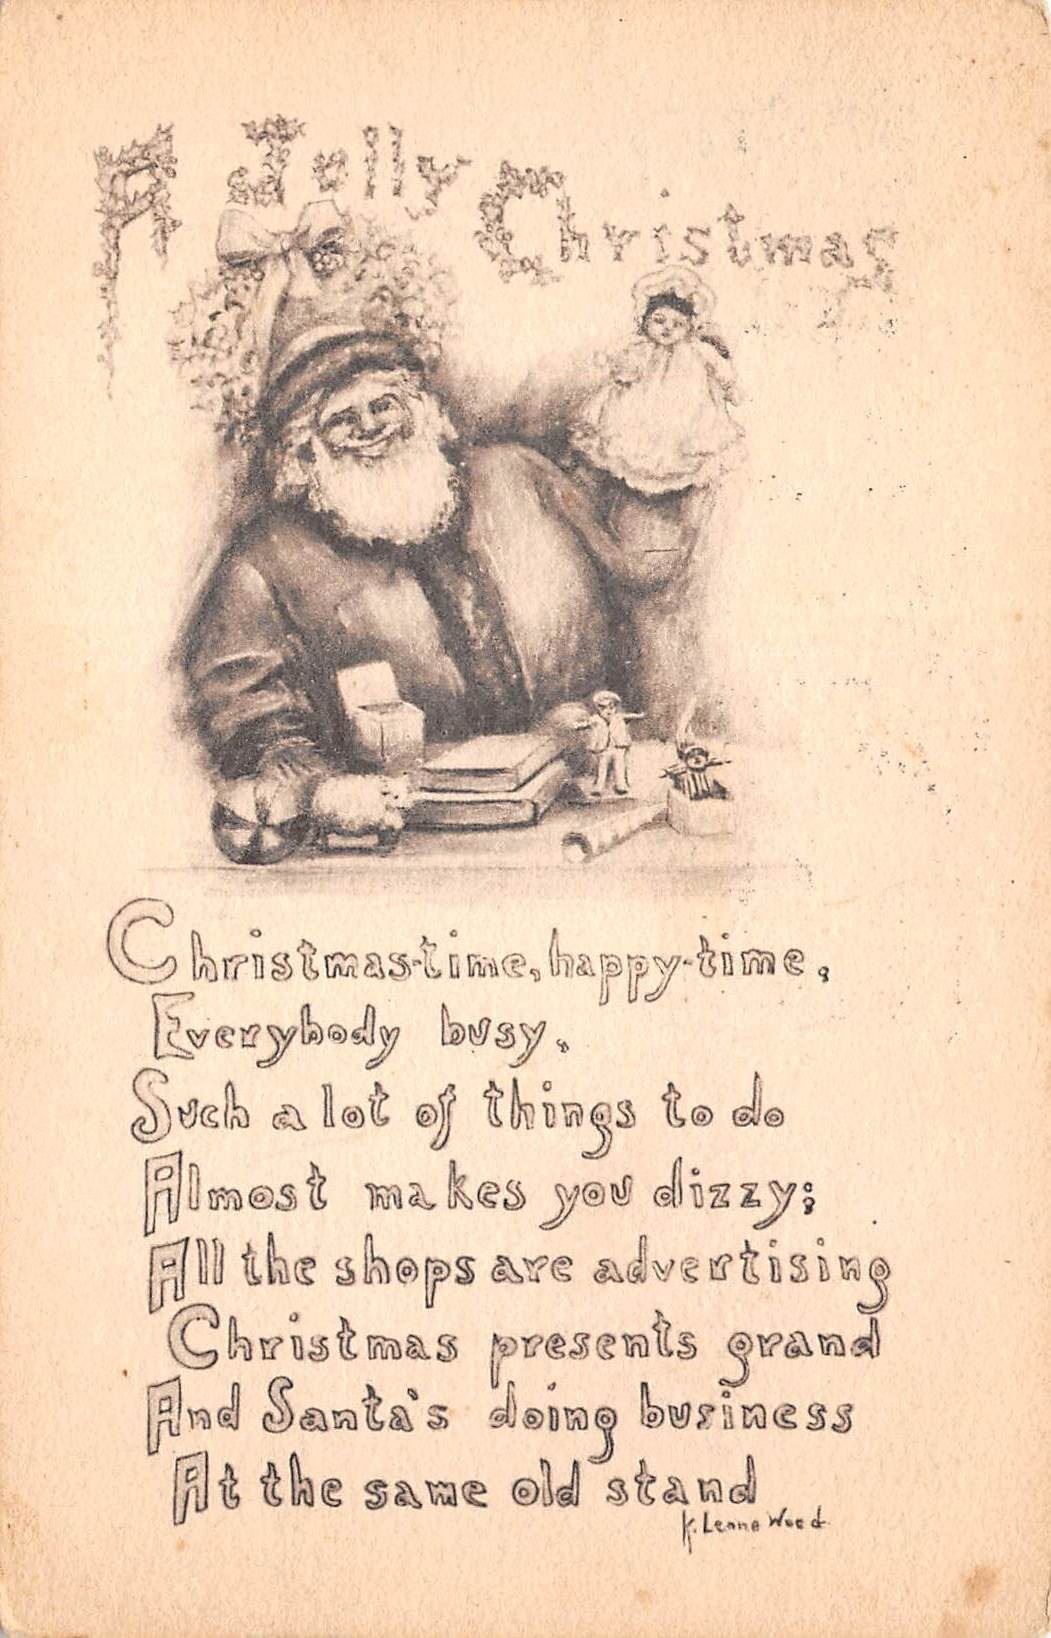 A Jolly Christmas
Christmas-time, happy-time,
Everybody busy,
Such a lot of things to do
Almost makes you dizzy;
All the shops are advertising
Christmas presents grand
And Santa's doing business
At the same old stand
K. Leone Wood